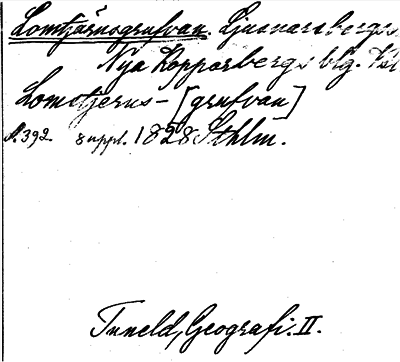 Lomtjärnsgrufvan. Ljusnarsbergs
Nya Kopparbergs blg.
Lomstjerns- [grufvan]
s. 392. suppl. 1828 Sthlm.
Tuneld, Geografi. II.